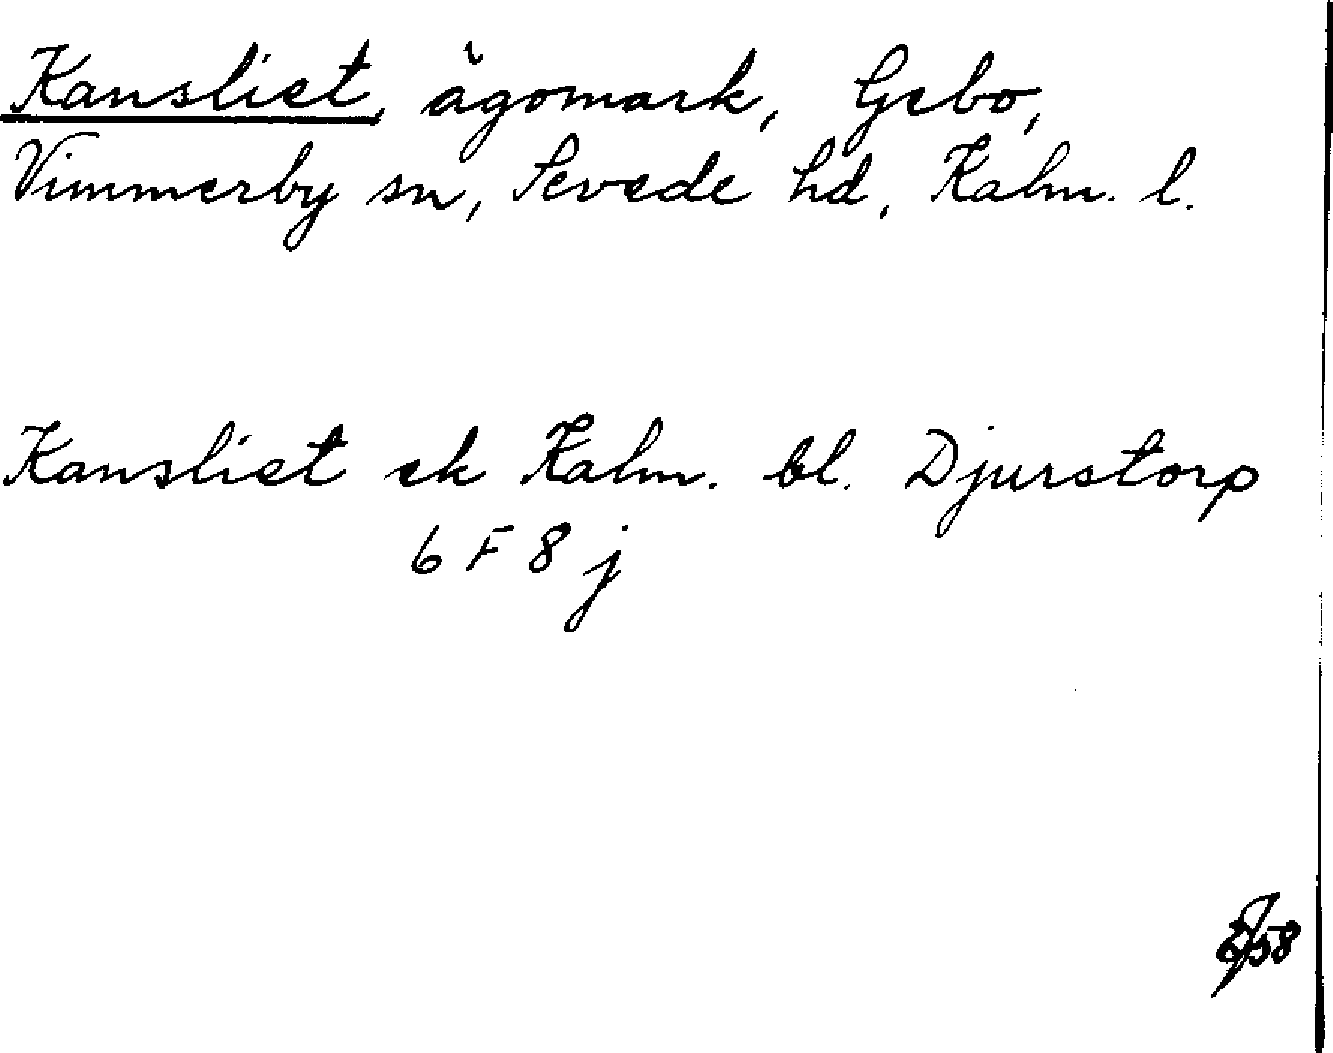 Kansliet, ägomark, Gebo,
Vimmerby sn, Sevede hd, Kalm. l.
Kansliet ek Kalm. bl. Djurstorp
6 F 8 j